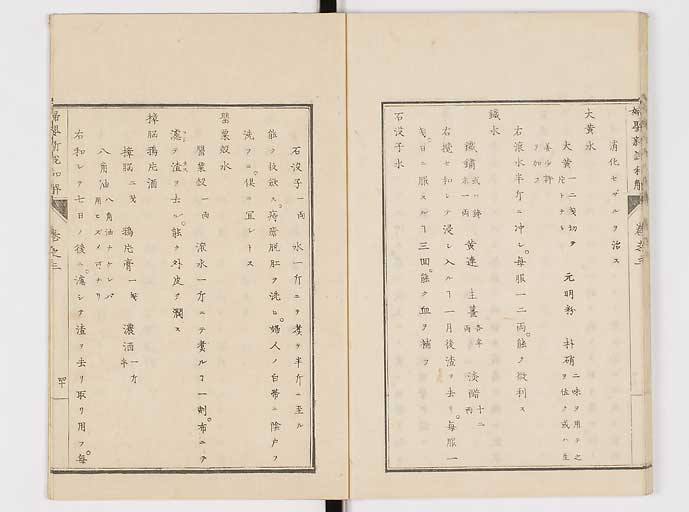 消化セザルヲ治ス
大黄水
大黄 一二戔切ヲ片トナシ 元明粉 朴硝 二味ヲ用テ之ヲ佐ク或ハ生姜少許ヲ加フ
右滾水半斤ニ冲シ。毎服一二両。能ク微利ス
鐵水
鐵鏽 或ハ鋒末一両 黄連 生薑 各半両 淡醋 十二両
右攪セ和シテ浸シ入ルヿ一月後渣ヲ去リ。毎服一
戔日ニ服スルヿ三回。能ク血ヲ補フ
石没子水
石没子 一両 水一斤ニテ煮テ半斤ニ至ル
能ク收斂ス。痔瘡脱肛ヲ洗ヒ。婦人ノ白帯ニ陰戸ヲ
洗フニ。俱ニ宜シトス
罌粟殻水
罌粟殻 一両 滾水一斤ニテ煮ルヿ一刻。布ニテ
濾テ渣ヲ去ル。能ク外皮ヲ潤ス
樟脳鴉片酒
樟脳 二戔 鴉片膏 一戔 濃酒 一斤半
八角油 八角油ナケレバ用ヒズメ可ナリ
右和シテ七日ノ後ニ。濾シテ渣ヲ去リ取リ用フ。毎
巻之三